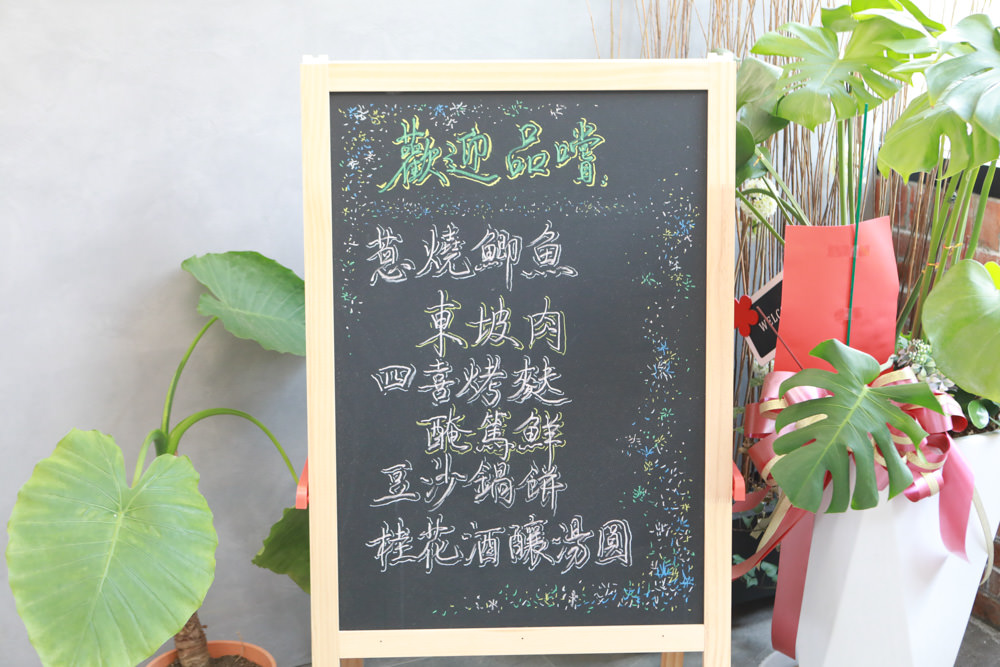 歡迎品嚐
蔥燒鯽魚
東坡肉
四喜烤麩
醃篤鮮
豆沙鍋餅
桂花酒釀湯圓